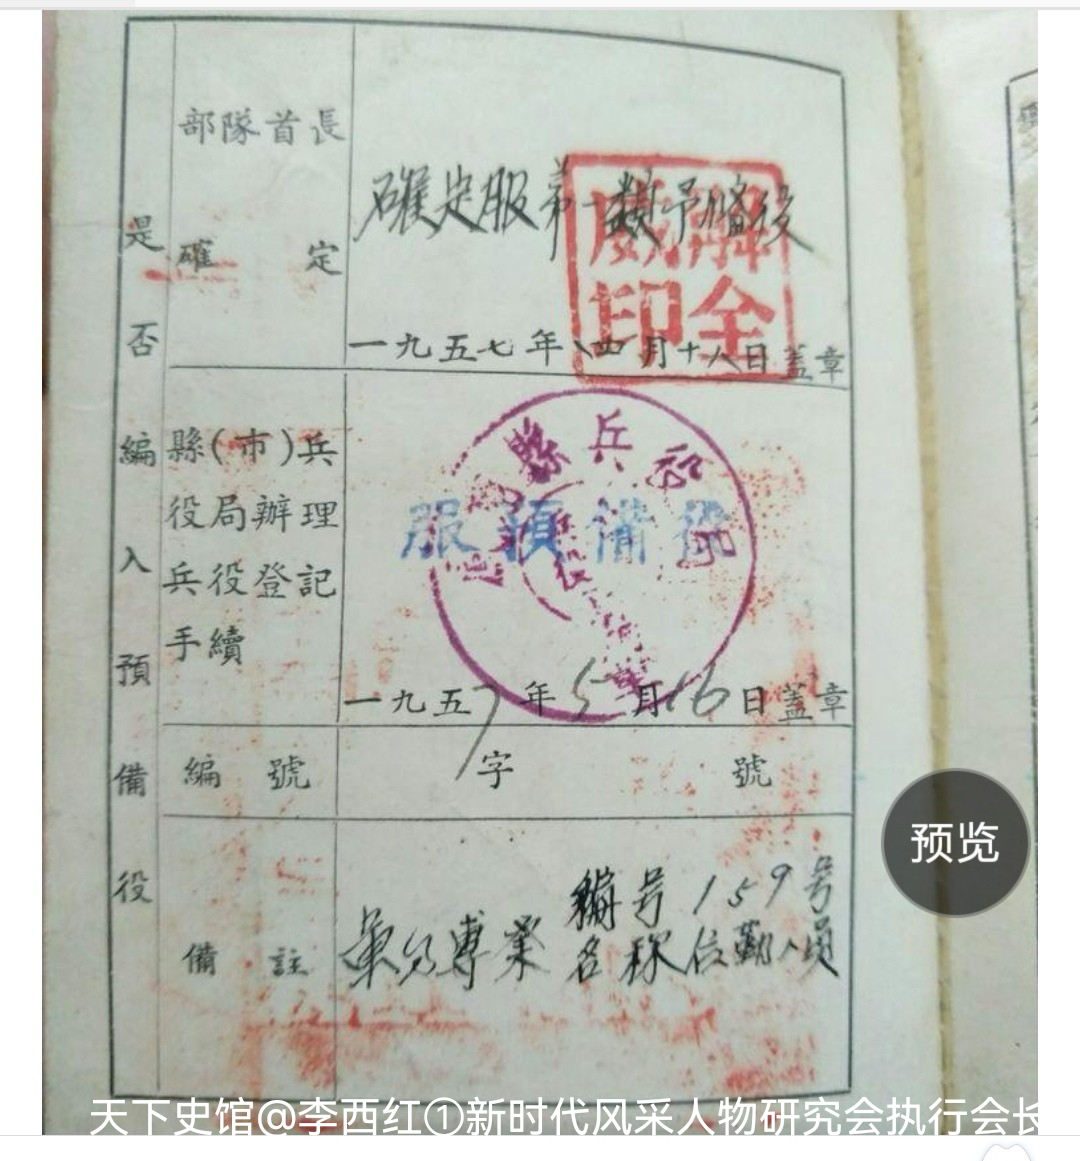 是否編入預備役
部隊首長
確定
確定服第一類予備役
一九五七年四月十八日蓋章
解全
印
縣(市)兵
役局辦理
兵役登記
手續
縣兵
服預備役
一九五7年5月16日蓋章
編號
字 號
備註
編号159号
專業名称 勤人員
预览
天下史馆@李西红①新时代风采人物研究会执行会长